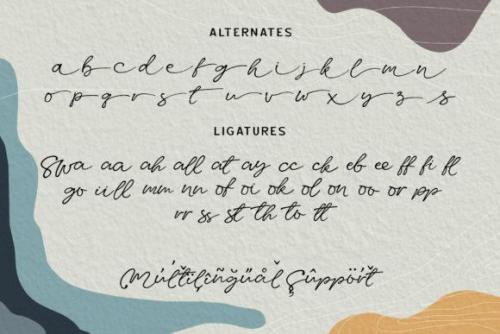 ALTERNATES
a b c d e f g h i j k l m n
o p q r s t u v w x y z s
LIGATURES
Swa aa ah all at ay cc ck eb ee ff fi fl
go ii ll mm nn of oi ok ol on oo or pp
rr ss st th to tt
Múltĩlîñğüåľ Şûppöřt